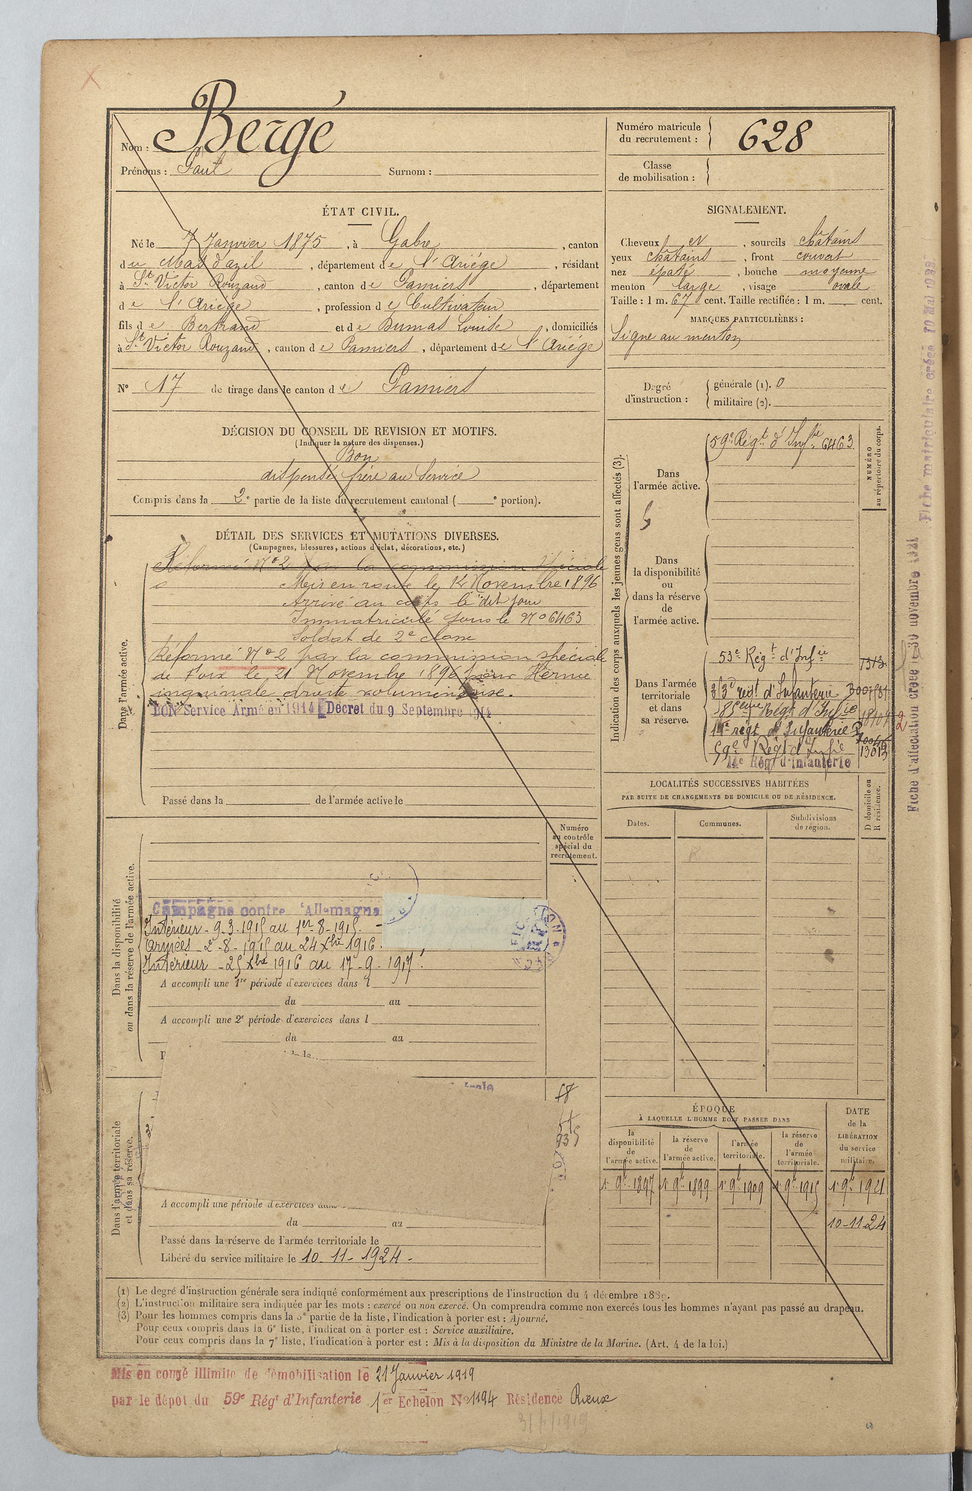 Nom : Bergé
Prénoms : Paul Surnom :
Numéro matricule du recrutement : 628
Classe de mobilisation :
ÉTAT CIVIL.
Né le 7 Janvier 1875, à Gabre, canton
de Mas d'azil, département de l'Ariège, résidant
à St Victor Rouzaud, canton de Pamiers, département
de l'Ariège, profession de Cultivateur
fils de Bertrand et de Dumas Louise, domiciliés
à St Victor Rouzaud, canton de Pamiers, département de l'Ariège
N° 17 de tirage dans le canton de Pamiers
SIGNALEMENT.
Cheveux et, sourcils châtains
yeux châtains, front couvert
nez épaté, bouche moyenne
menton large, visage ovale
Taille : 1 m. 67 cent. Taille rectifiée : 1 m. cent.
MARQUES PARTICULIÈRES :
Signe au menton
Degré d'instruction : générale (1). 0
militaire (2).
DÉCISION DU CONSEIL DE REVISION ET MOTIFS.
(Indiquer la nature des dispenses.)
Bon
dispensé frère au Service
Compris dans la 2e partie de la liste du recrutement cantonal ( e portion).
DÉTAIL DES SERVICES ET MUTATIONS DIVERSES.
(Campagnes, blessures, actions d'éclat, décorations, etc.)
Dans l'armée active.
Réformé N° 2 par la commission spéciale
Mis en route le 14 Novembre 1896
Arrivé au corps le dit jour
Immatriculé sous le N° 6463
Soldat de 2e classe
Réformé N° 2 par la commission spéciale
de Foix le 21 Novembre 1896 pour Hernie
inguinale droite volumineuse.
BON Service Armé en 1914 Décret du 9 Septembre 1914
Passé dans la de l'armée active le
Indication des corps auxquels les jeunes gens sont affectés (3).
Dans l'armée active.
59e Régt d'Infie 6463
NUMÉRO au répertoire du corps.
Dans la disponibilité ou dans la réserve de l'armée active.
Dans l'armée territoriale et dans sa réserve.
53e Régt d'Infie
régt d'Infanterie
Régt d'Infie
régt d'Infanterie
59e Régt d'Infie 13013
14e Rég d'Infanterie
LOCALITÉS SUCCESSIVES HABITÉES
PAR SUITE DE CHANGEMENTS DE DOMICILE OU DE RÉSIDENCE.
Dates. Communes. Subdivisions de région.
D domicile ou R résidence.
Dans la disponibilité ou dans la réserve de l'armée active.
Numéro au contrôle spécial du recrutement.
Campagne contre l'Allemagne
Intérieur - 9-3-1915 au 1er-8-1915 -
Armées - 2-8-1915 au 24 Xbre 1916
Intérieur - 25 Xbre 1916 au 17-9-1917
A accompli une 1re période d'exercices dans l
du au
A accompli une 2e période d'exercices dans l
du au
Dans l'armée territoriale et dans sa réserve.
A accompli une période d'exercices dans
du au
Passé dans la réserve de l'armée territoriale le
Libéré du service militaire le 10-11-1924-
ÉPOQUE
À LAQUELLE L'HOMME DOIT PASSER DANS
la disponibilité de l'armée active.
la réserve de l'armée active.
l'armée territoriale.
la réserve de l'armée territoriale.
DATE de la LIBÉRATION du service militaire.
1 9bre 1897 1 9bre 1899 1 9bre 1909 1 9bre 1915 1 9bre 1921
10-11-24
(1) Le degré d'instruction générale sera indiqué conformément aux prescriptions de l'instruction du 4 décembre 1889.
(2) L'instruction militaire sera indiquée par les mots : exercé ou non exercé. On comprendra comme non exercés tous les hommes n'ayant pas passé au drapeau.
(3) Pour les hommes compris dans la 5e partie de la liste, l'indication à porter est : Ajourné.
Pour ceux compris dans la 6e liste, l'indication à porter est : Service auxiliaire.
Pour ceux compris dans la 7e liste, l'indication à porter est : Mis à la disposition du Ministre de la Marine. (Art. 4 de la loi.)
Mis en congé illimité de démobilisation le 21 Janvier 1919
par le dépot du 59e Régt d'Infanterie 1er Echelon N° 1194 Résidence Rieux
Fiche d'affectation créée le 30 novembre 1921
Fiche matriculaire créée 10 Mai 1933